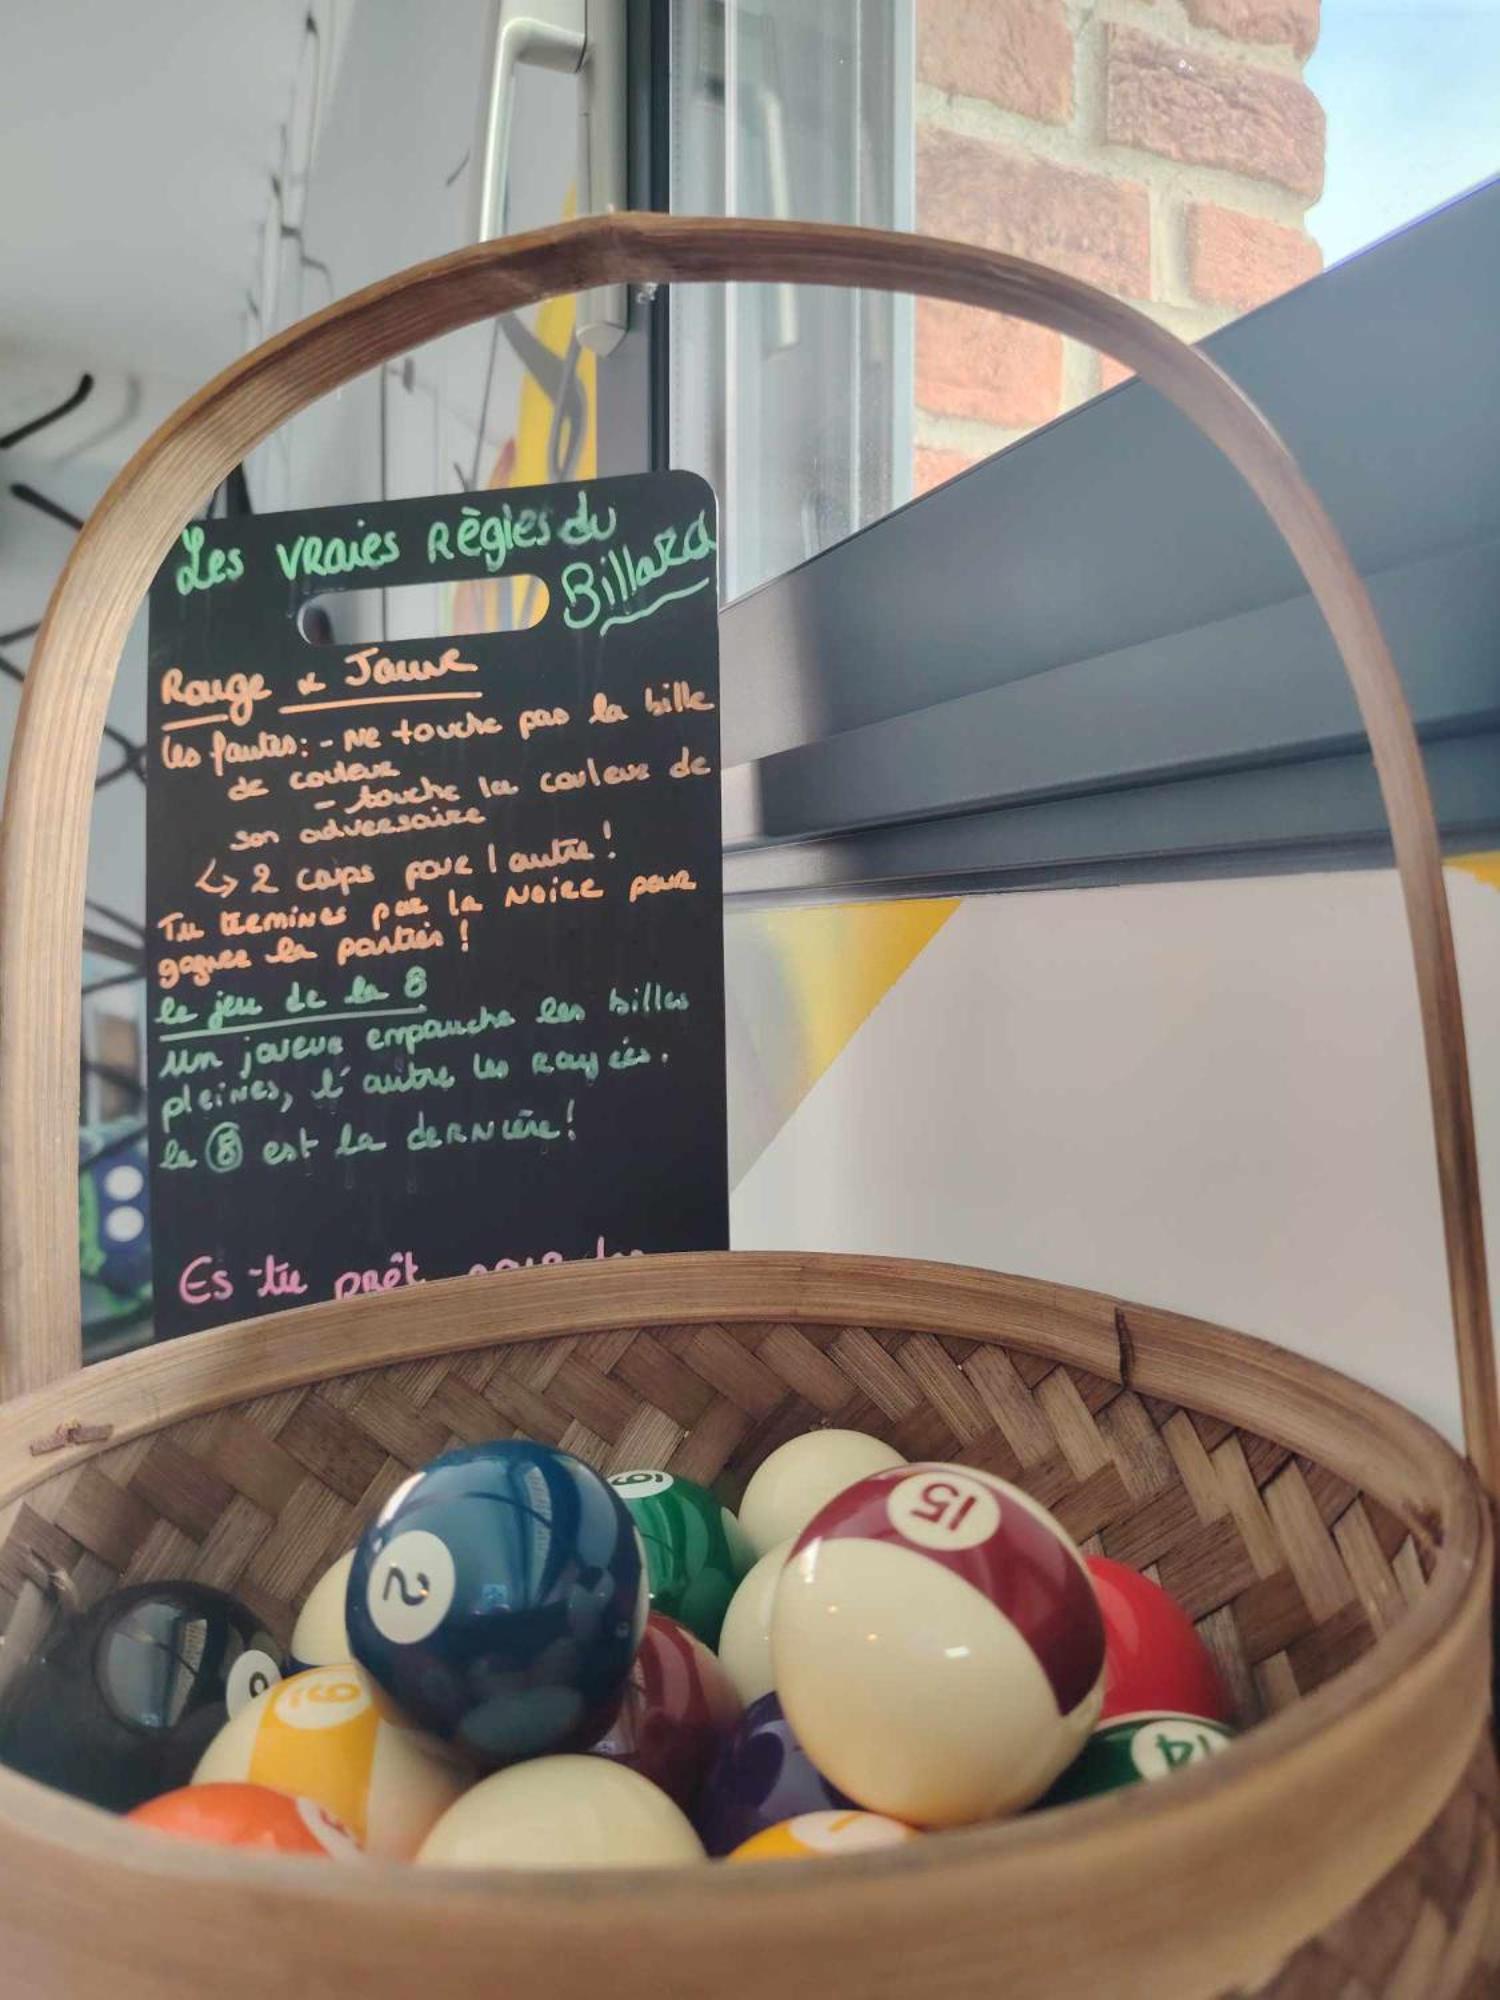 Les vraies Règles du
Billard
Rouge & Jaune
les fautes: - Ne touche pas la bille
de couleur
- touche la couleur de
son adversaire
↳ 2 coups pour l'autre!
Tu termines par la Noire pour
gagner la parties!
le jeu de la 8
Un joueur empouche les billes
pleines, l'autre les rayées.
la 8 est la dernière!
Es-tu prêt pour
2
6
15
9
14